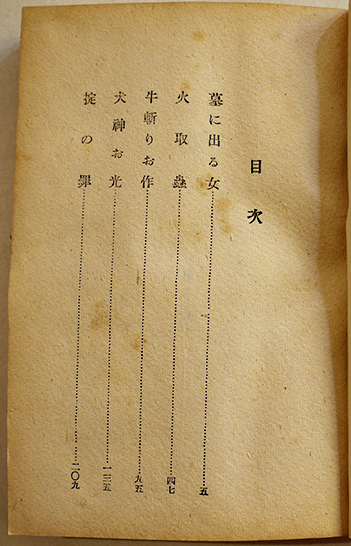 目次
墓に出る女……五
火取蟲……四七
牛斬りお作……九五
犬神お光……一三五
掟の罪……二〇九